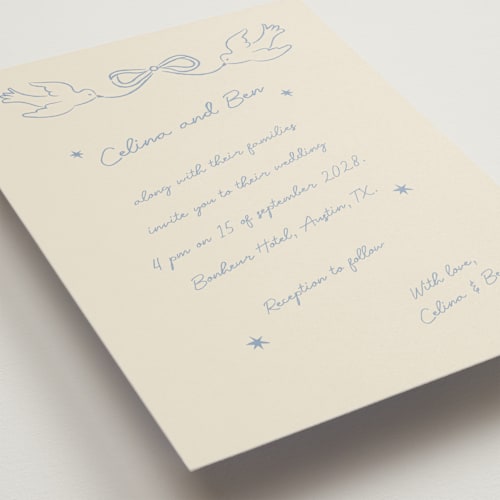 Celina and Ben
along with their families
invite you to their wedding
4 pm on 15 of september 2028.
Bonheur Hotel, Austin, TX.
Reception to follow
With love,
Celina & Be